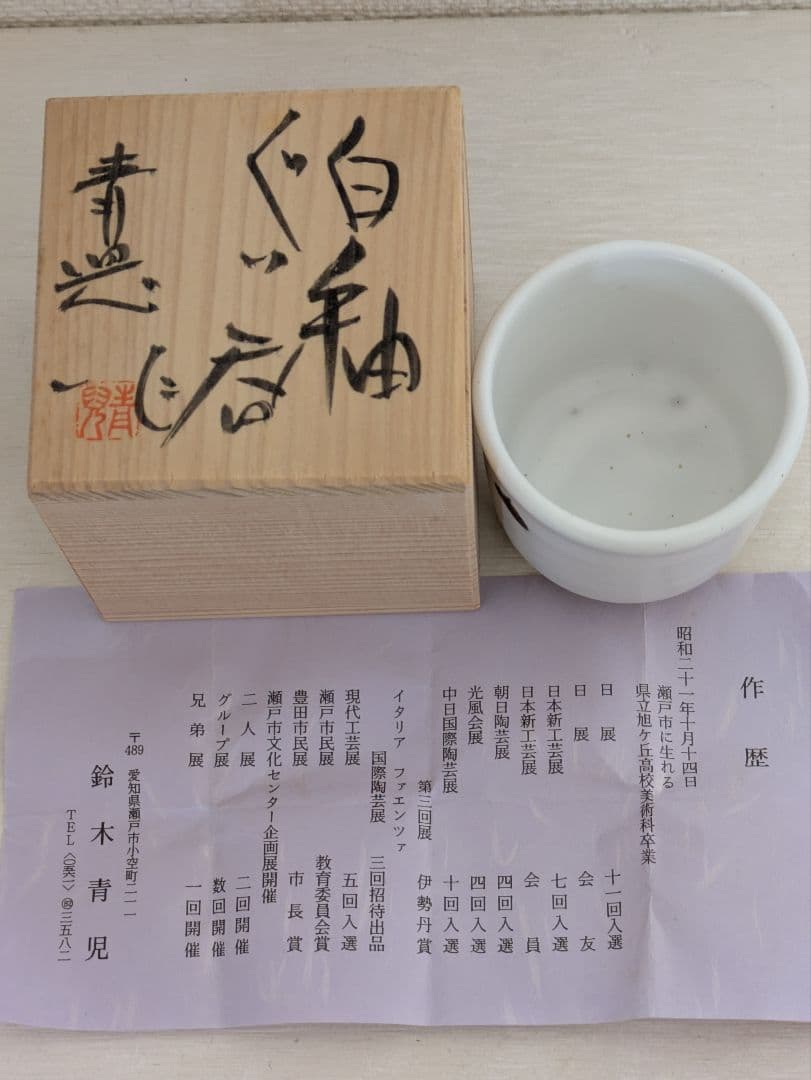 白釉
ぐい呑
青
青兒
作歴
昭和二十一年十月十四日
瀬戸市に生れる
県立旭ケ丘高校美術科卒業
日展 十一回入選
日展 会友
日本新工芸展 七回入選
日本新工芸展 会員
朝日陶芸展 四回入選
光風会展 四回入選
中日国際陶芸展 十回入選
第三回展 伊勢丹賞
イタリア ファエンツァ
国際陶芸展 三回招待出品
現代工芸展 五回入選
瀬戸市民展 教育委員会賞
豊田市民展 市長賞
瀬戸市文化センター企画展開催
二人展 二回開催
グループ展 数回開催
兄弟展 一回開催
〒489 愛知県瀬戸市小空町二一一
鈴木青児
TEL〈〇五六一〉㉒三五八二